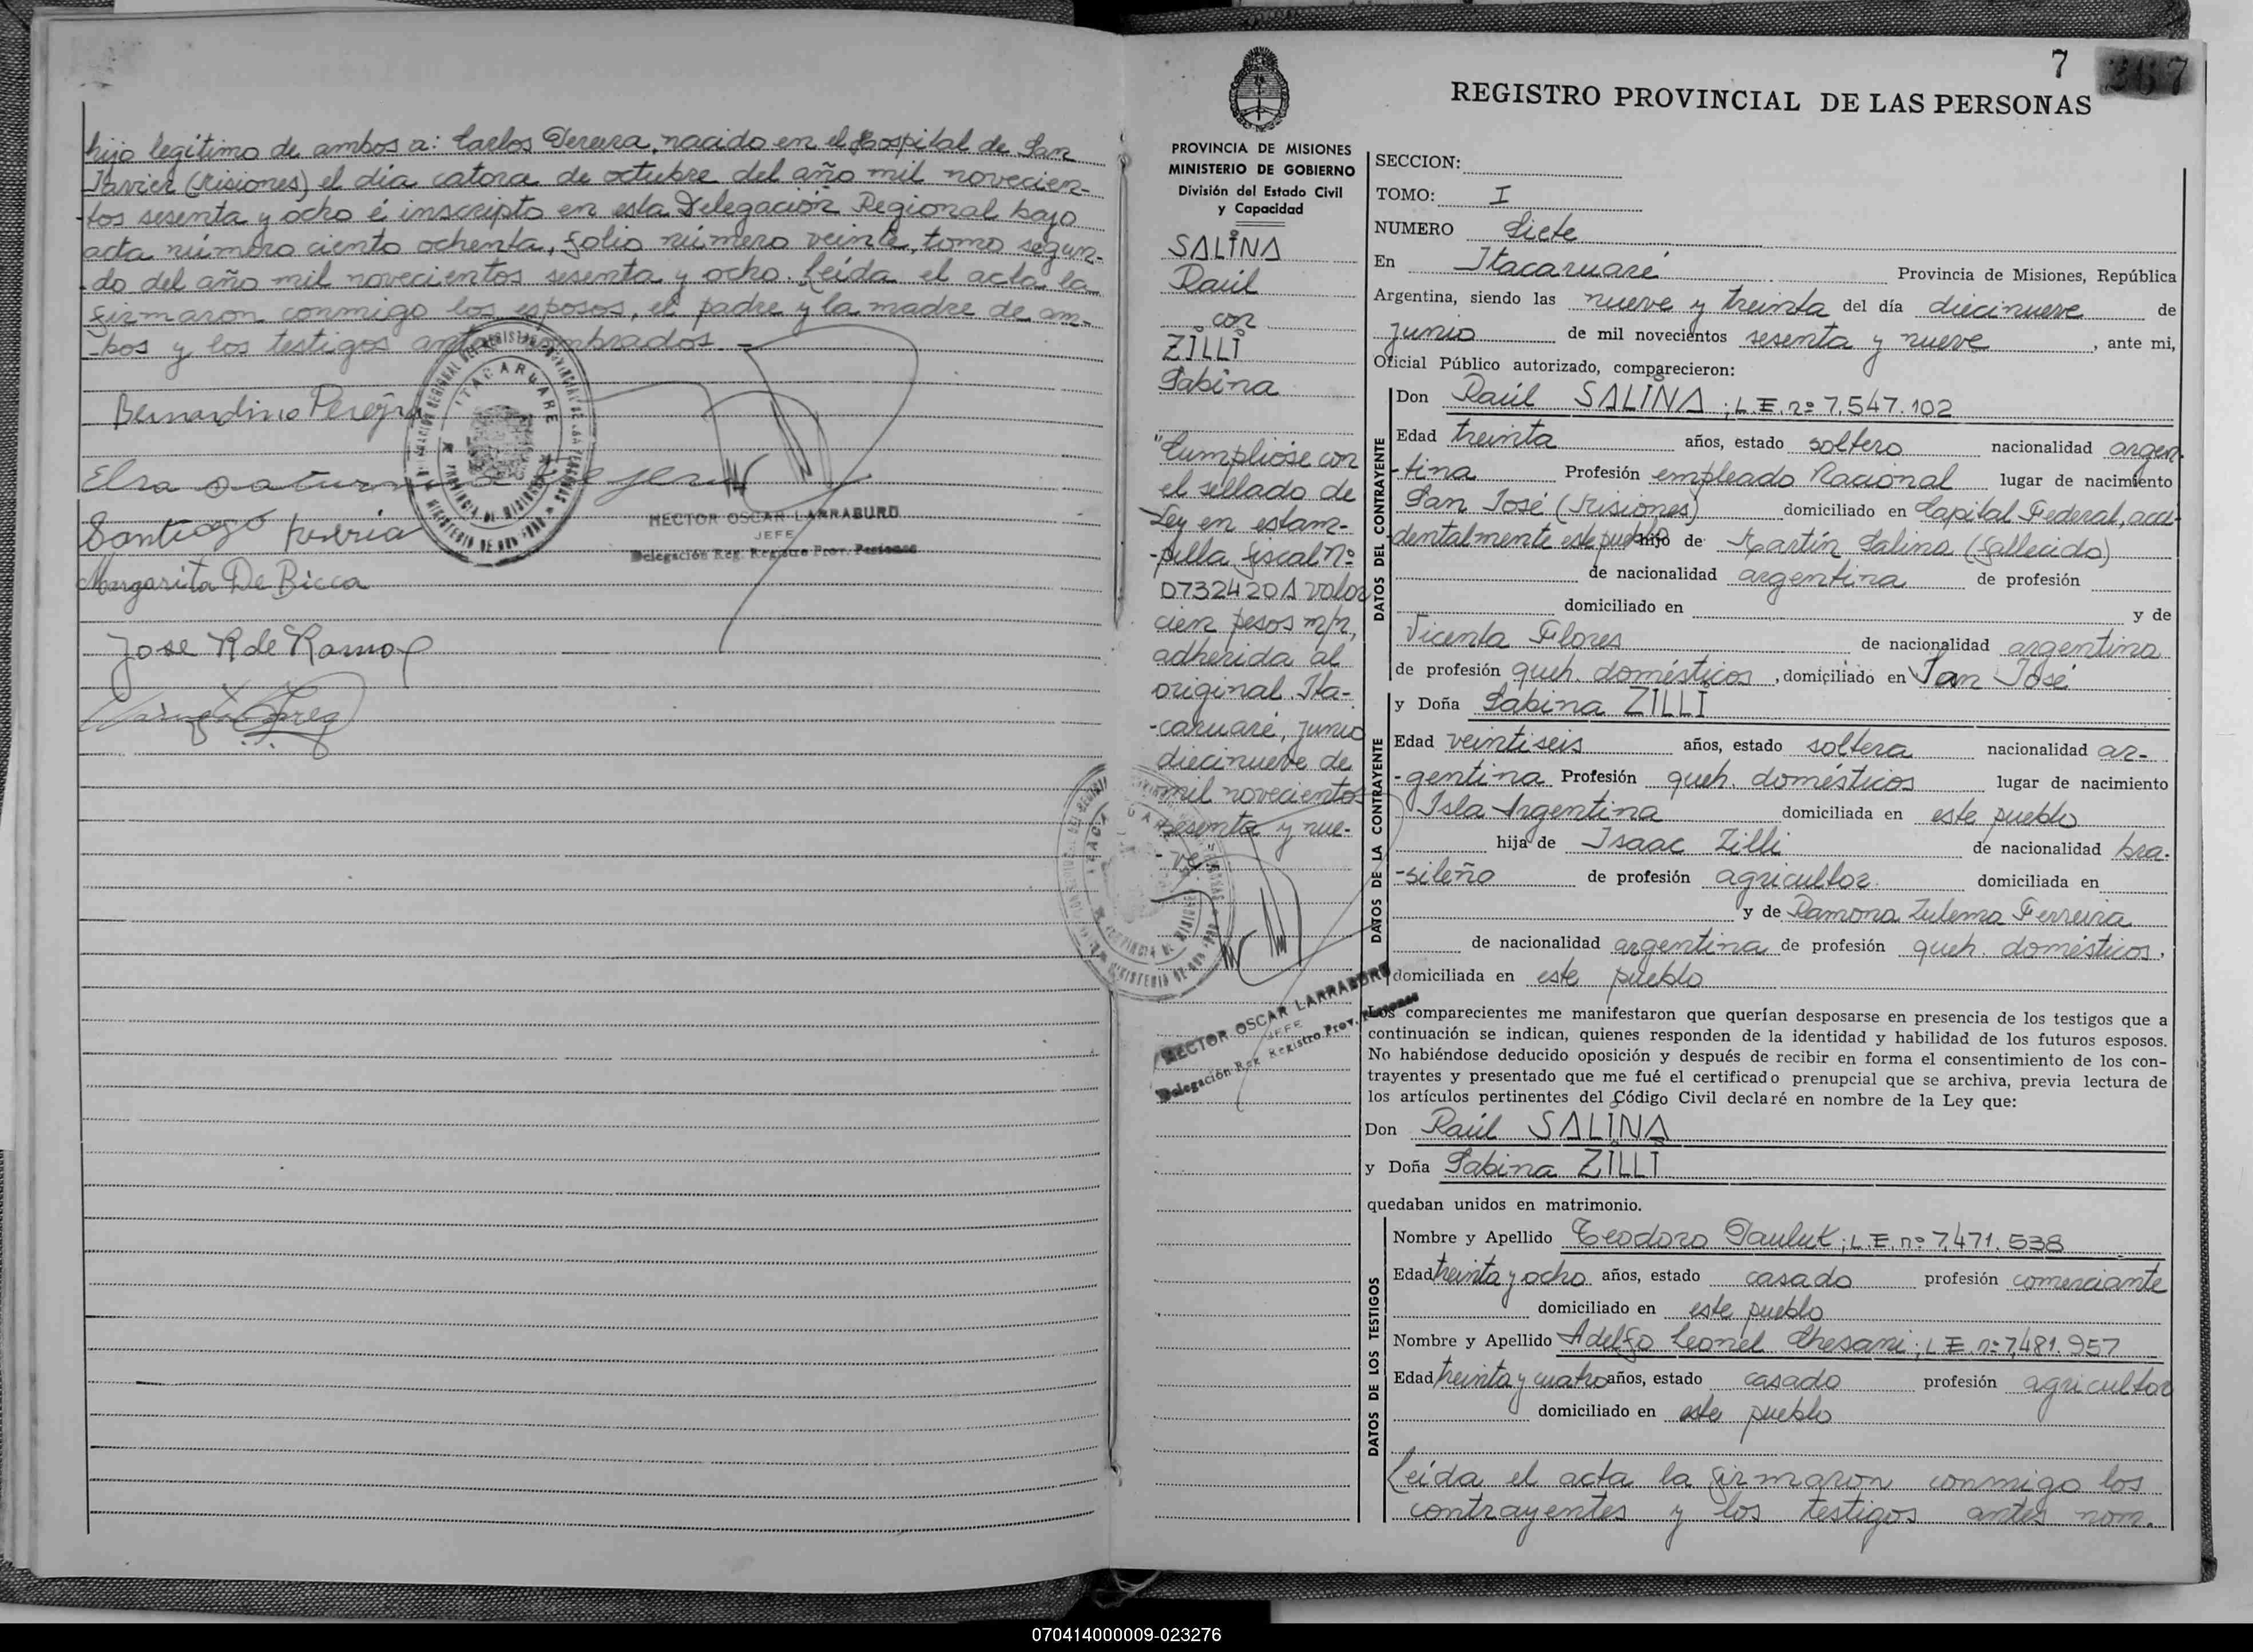 hijo legítimo de ambos a: Carlos Pereira, nacido en el Hospital de San
Javier (Misiones) el día catorce de octubre del año mil novecien-
-tos sesenta y ocho é inscripto en esta Delegación Regional bajo
acta número ciento ochenta, folio número veinte, tomo segun-
-do del año mil novecientos sesenta y ocho. Leída el acta la
firmaron conmigo los esposos, el padre y la madre de am-
-bos y los testigos antes nombrados.-
Bernardino Pereyra
Elsa
Santiago
Margarita De Bicca
Jose R de Ramos
HECTOR OSCAR LARRABURU
JEFE
Delegación Reg. Registro Prov. Personas
7
367
REGISTRO PROVINCIAL DE LAS PERSONAS
PROVINCIA DE MISIONES
MINISTERIO DE GOBIERNO
División del Estado Civil
y Capacidad
SALINA
Raúl
con
ZILLI
Sabina
"Cumplióse con
el sellado de
Ley en estam-
-pilla fiscal nº
0732420A valor
cien pesos m/n,
adherida al
original. Ita-
-caruaré, junio
diecinueve de
mil novecientos
sesenta y nue-
-ve"
HECTOR OSCAR LARRABURU
JEFE
Delegación Reg. Registro Prov. Personas
SECCION:
TOMO: I
NUMERO Siete
En Itacaruaré Provincia de Misiones, República
Argentina, siendo las nueve y treinta del día diecinueve de
junio de mil novecientos sesenta y nueve, ante mi,
Oficial Público autorizado, comparecieron:
DATOS DEL CONTRAYENTE
Don Raúl SALINA; L.E. nº 7.547.102
Edad treinta años, estado soltero nacionalidad argen-
-tina Profesión empleado Nacional lugar de nacimiento
San José (Misiones) domiciliado en Capital Federal, acci-
-dentalmente este pueblo hijo de Martín Salina (fallecido)
de nacionalidad argentina de profesión
domiciliado en y de
Vicenta Flores de nacionalidad argentina
de profesión queh. domésticos, domiciliado en San José
DATOS DE LA CONTRAYENTE
y Doña Sabina ZILLI
Edad veintiseis años, estado soltera nacionalidad ar-
-gentina Profesión queh. domésticos lugar de nacimiento
Isla Argentina domiciliada en este pueblo
hija de Isaac Zilli de nacionalidad bra-
-sileño de profesión agricultor. domiciliada en
y de Ramona Zulema Ferreira
de nacionalidad argentina de profesión queh. domésticos,
domiciliada en este pueblo
Los comparecientes me manifestaron que querían desposarse en presencia de los testigos que a
continuación se indican, quienes responden de la identidad y habilidad de los futuros esposos.
No habiéndose deducido oposición y después de recibir en forma el consentimiento de los con-
trayentes y presentado que me fué el certificado prenupcial que se archiva, previa lectura de
los artículos pertinentes del Código Civil declaré en nombre de la Ley que:
Don Raúl SALINA
y Doña Sabina ZILLI
quedaban unidos en matrimonio.
DATOS DE LOS TESTIGOS
Nombre y Apellido Teodoro Pauluk; L.E. nº 7.471.538
Edad treinta y ocho años, estado casado profesión comerciante
domiciliado en este pueblo
Nombre y Apellido Adelfo Leonel Chesani; L.E. nº 7.481.957
Edad treinta y cuatro años, estado casado profesión agricultor
domiciliado en este pueblo
Leída el acta la firmaron conmigo los
contrayentes y los testigos antes nom-
070414000009-023276